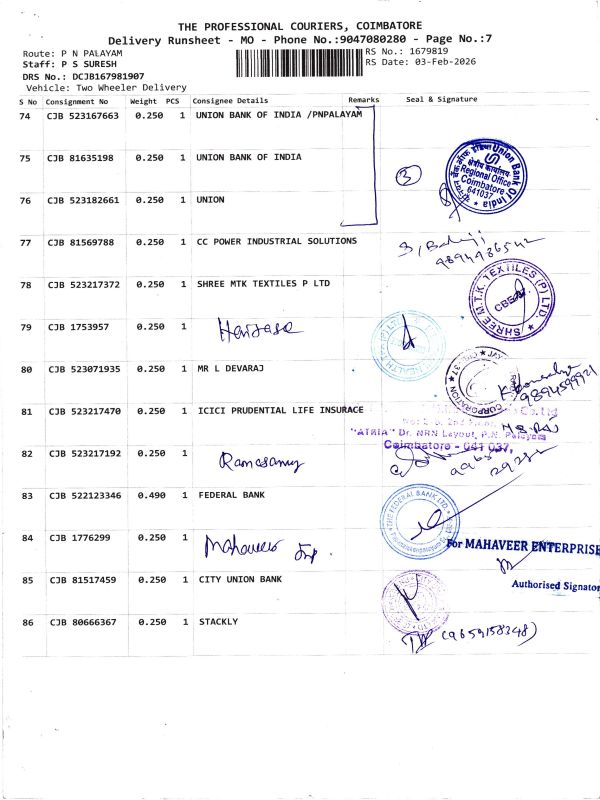 THE PROFESSIONAL COURIERS, COIMBATORE
Delivery Runsheet - MO - Phone No.:9047080280 - Page No.:7
Route: P N PALAYAM
RS No.: 1679819
Staff: P S SURESH
RS Date: 03-Feb-2026
DRS No.: DCJB167981907
Vehicle: Two Wheeler Delivery
S No Consignment No Weight PCS Consignee Details Remarks Seal & Signature
74 CJB 523167663 0.250 1 UNION BANK OF INDIA /PNPALAYAM
75 CJB 81635198 0.250 1 UNION BANK OF INDIA
3
Union Bank Of India
क्षेत्रीय कार्यालय
Regional Office
Coimbatore
641037
76 CJB 523182661 0.250 1 UNION
77 CJB 81569788 0.250 1 CC POWER INDUSTRIAL SOLUTIONS
9894986542
78 CJB 523217372 0.250 1 SHREE MTK TEXTILES P LTD
SHREE M.T.K. TEXTILES (P) LTD
CBE
79 CJB 1753957 0.250 1
80 CJB 523071935 0.250 1 MR L DEVARAJ
CORPORATION
9894599921
81 CJB 523217470 0.250 1 ICICI PRUDENTIAL LIFE INSURACE
Co.Ltd
"ATRIA" Dr. NRN Layout, P.N. Palayam
Coimbatore - 641 037,
82 CJB 523217192 0.250 1 Ramasamy
83 CJB 522123346 0.490 1 FEDERAL BANK
THE FEDERAL BANK LTD.
84 CJB 1776299 0.250 1 Mahaveer
For MAHAVEER ENTERPRISE
Authorised Signator
85 CJB 81517459 0.250 1 CITY UNION BANK
86 CJB 80666367 0.250 1 STACKLY
(9659158348)